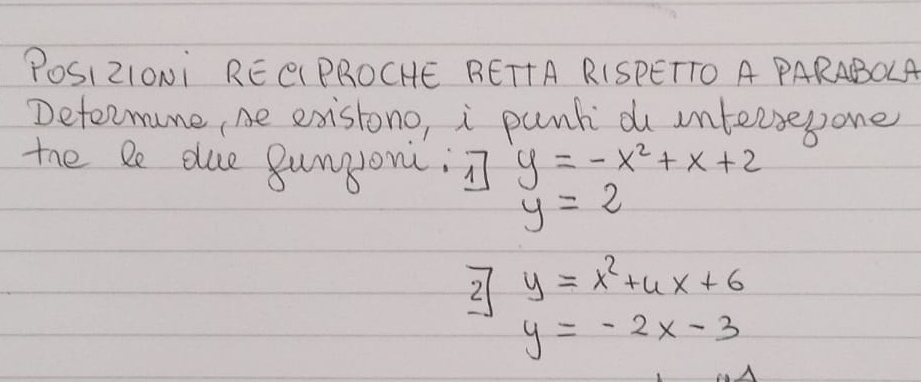 POSIZIONI RECIPROCHE RETTA RISPETTO A PARABOLA
Determina, se esistono, i punti di intersezione
tra le due funzioni: 1] y = -x² + x + 2
y = 2
2] y = x² + 4x + 6
y = - 2x - 3